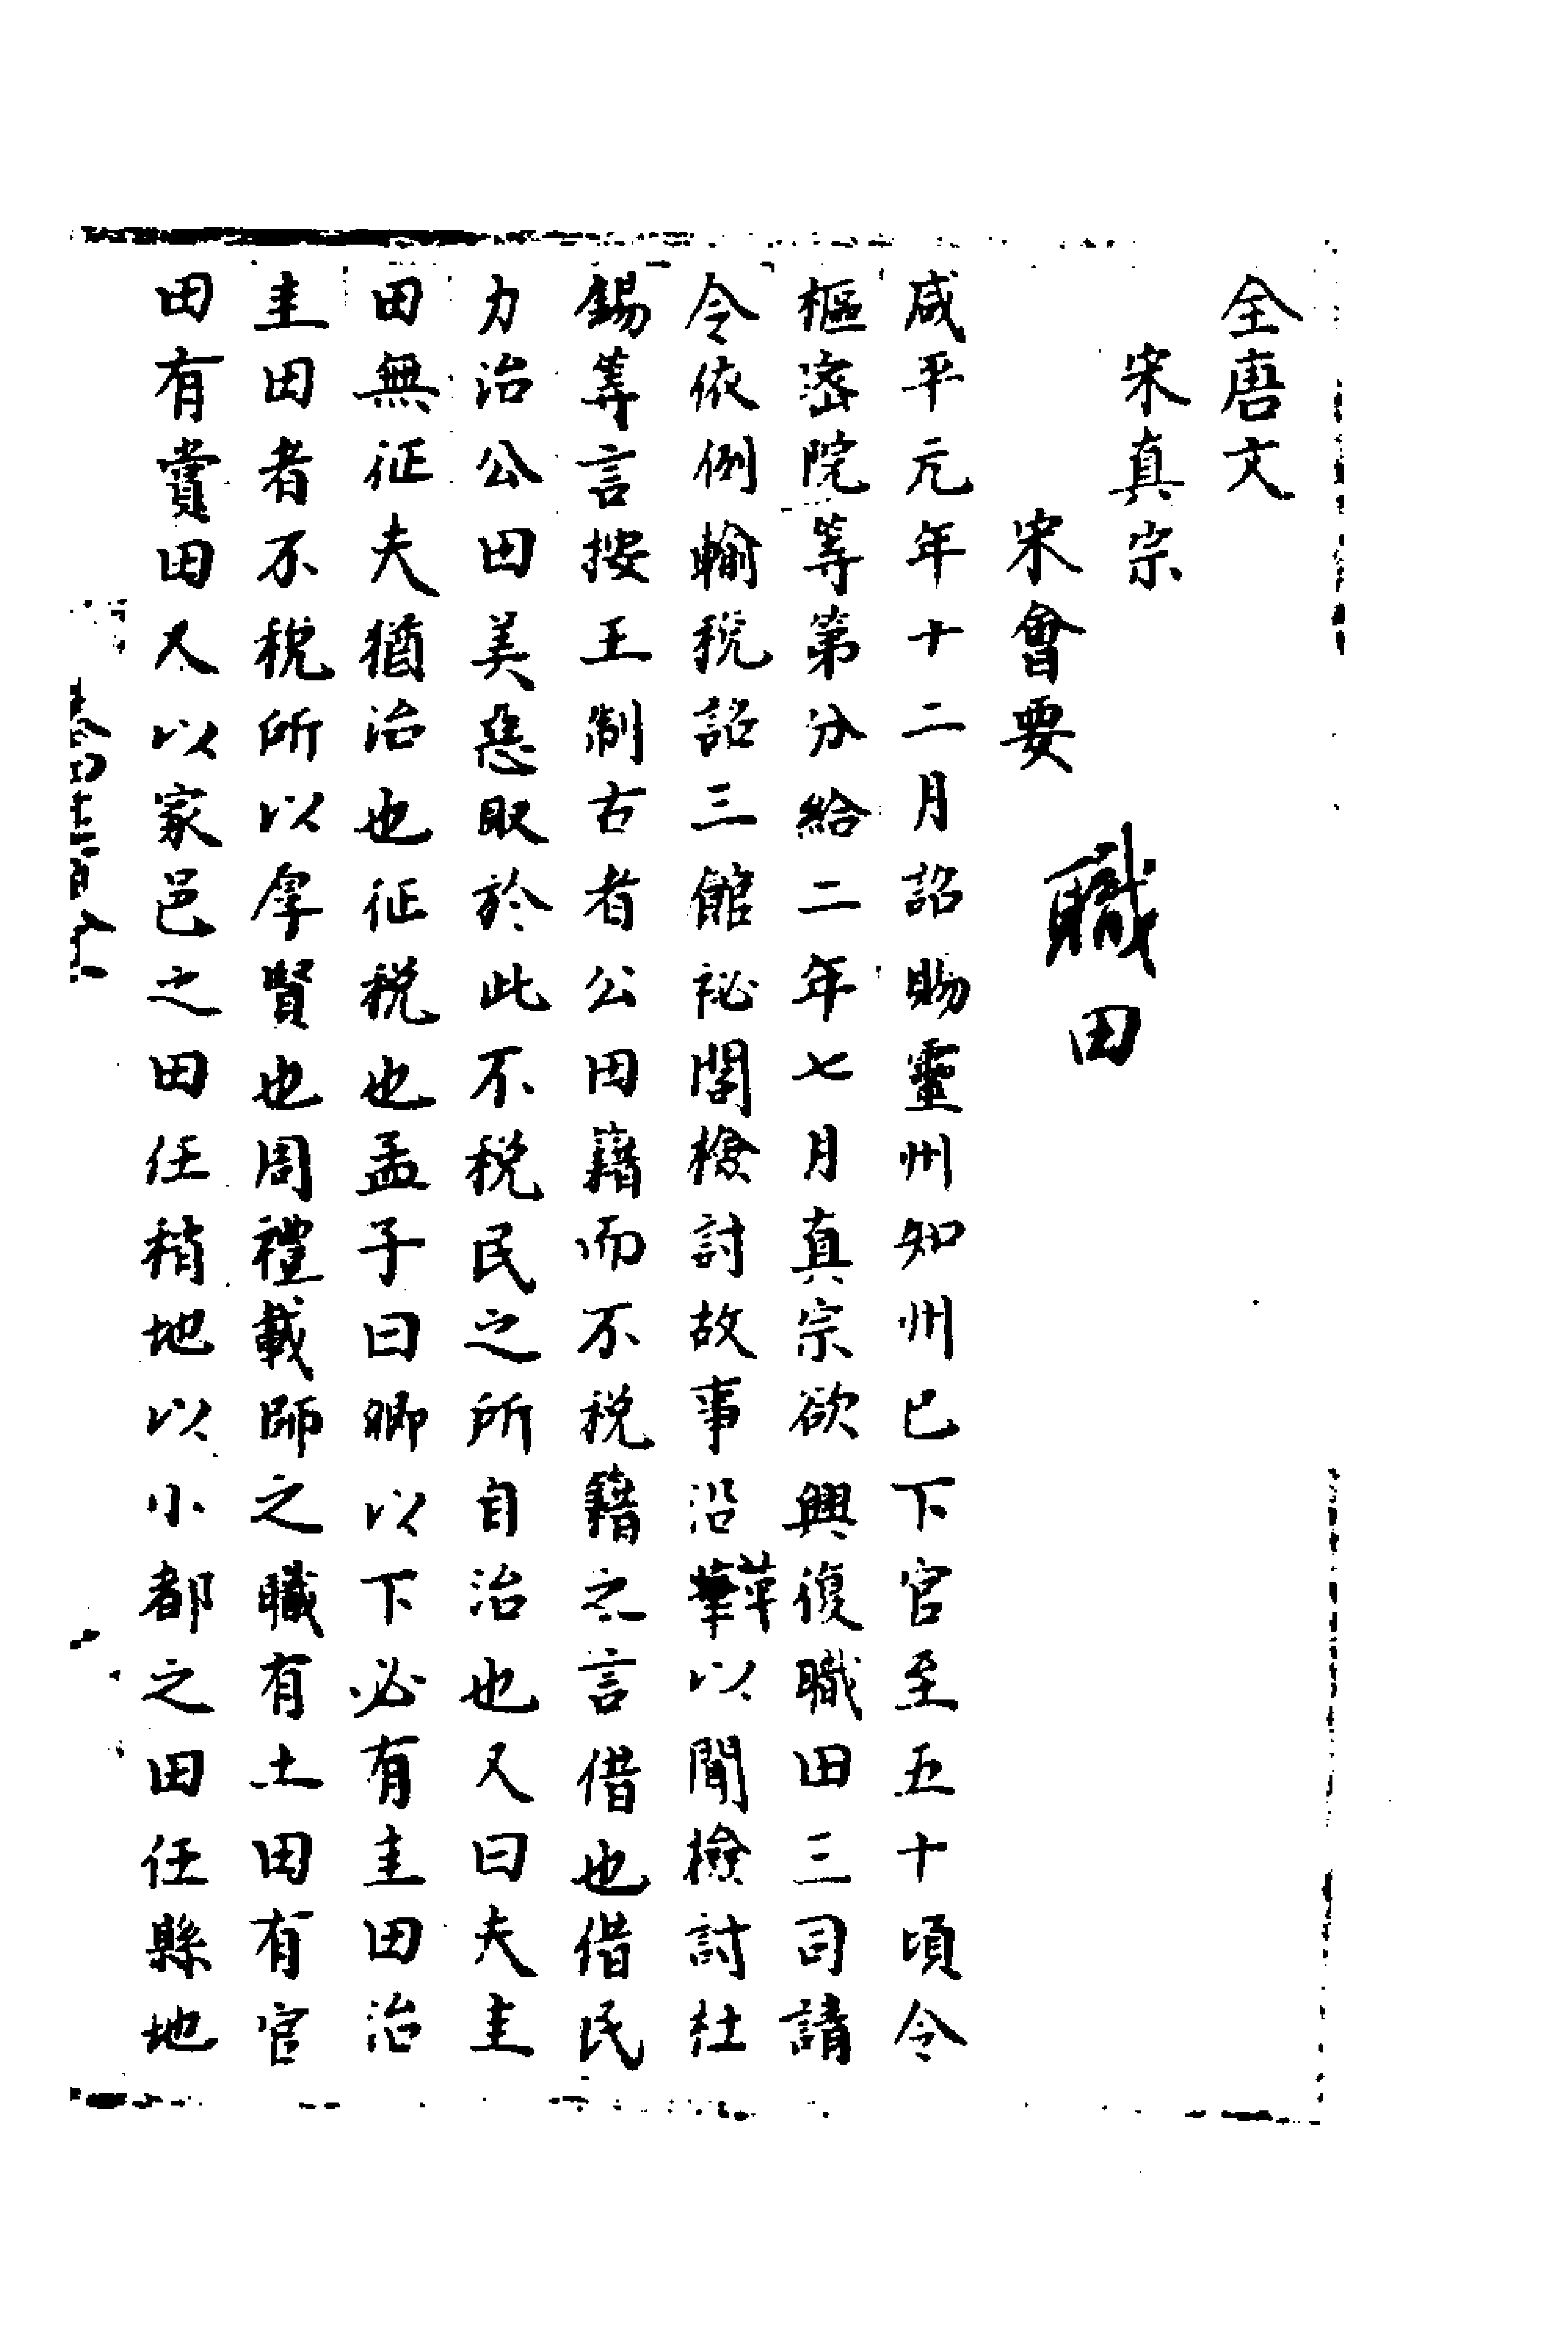 全唐文
宋真宗
宋會要
職田
咸平元年十二月詔賜靈州知州已下官至五十頃令
樞密院等第分給二年七月真宗欲興復職田三司請
令依例輸稅詔三館祕閣檢討故事沿革以聞檢討杜
錫等言按王制古者公田藉而不稅籍之言借也借民
力治公田美惡取於此不稅民之所自治也又曰夫圭
田無征夫猶治也征稅也孟子曰卿以下必有圭田治
圭田者不稅所以厚賢也周禮載師之職有土田有官
田有賞田又以家邑之田任稍地以小都之田任縣地